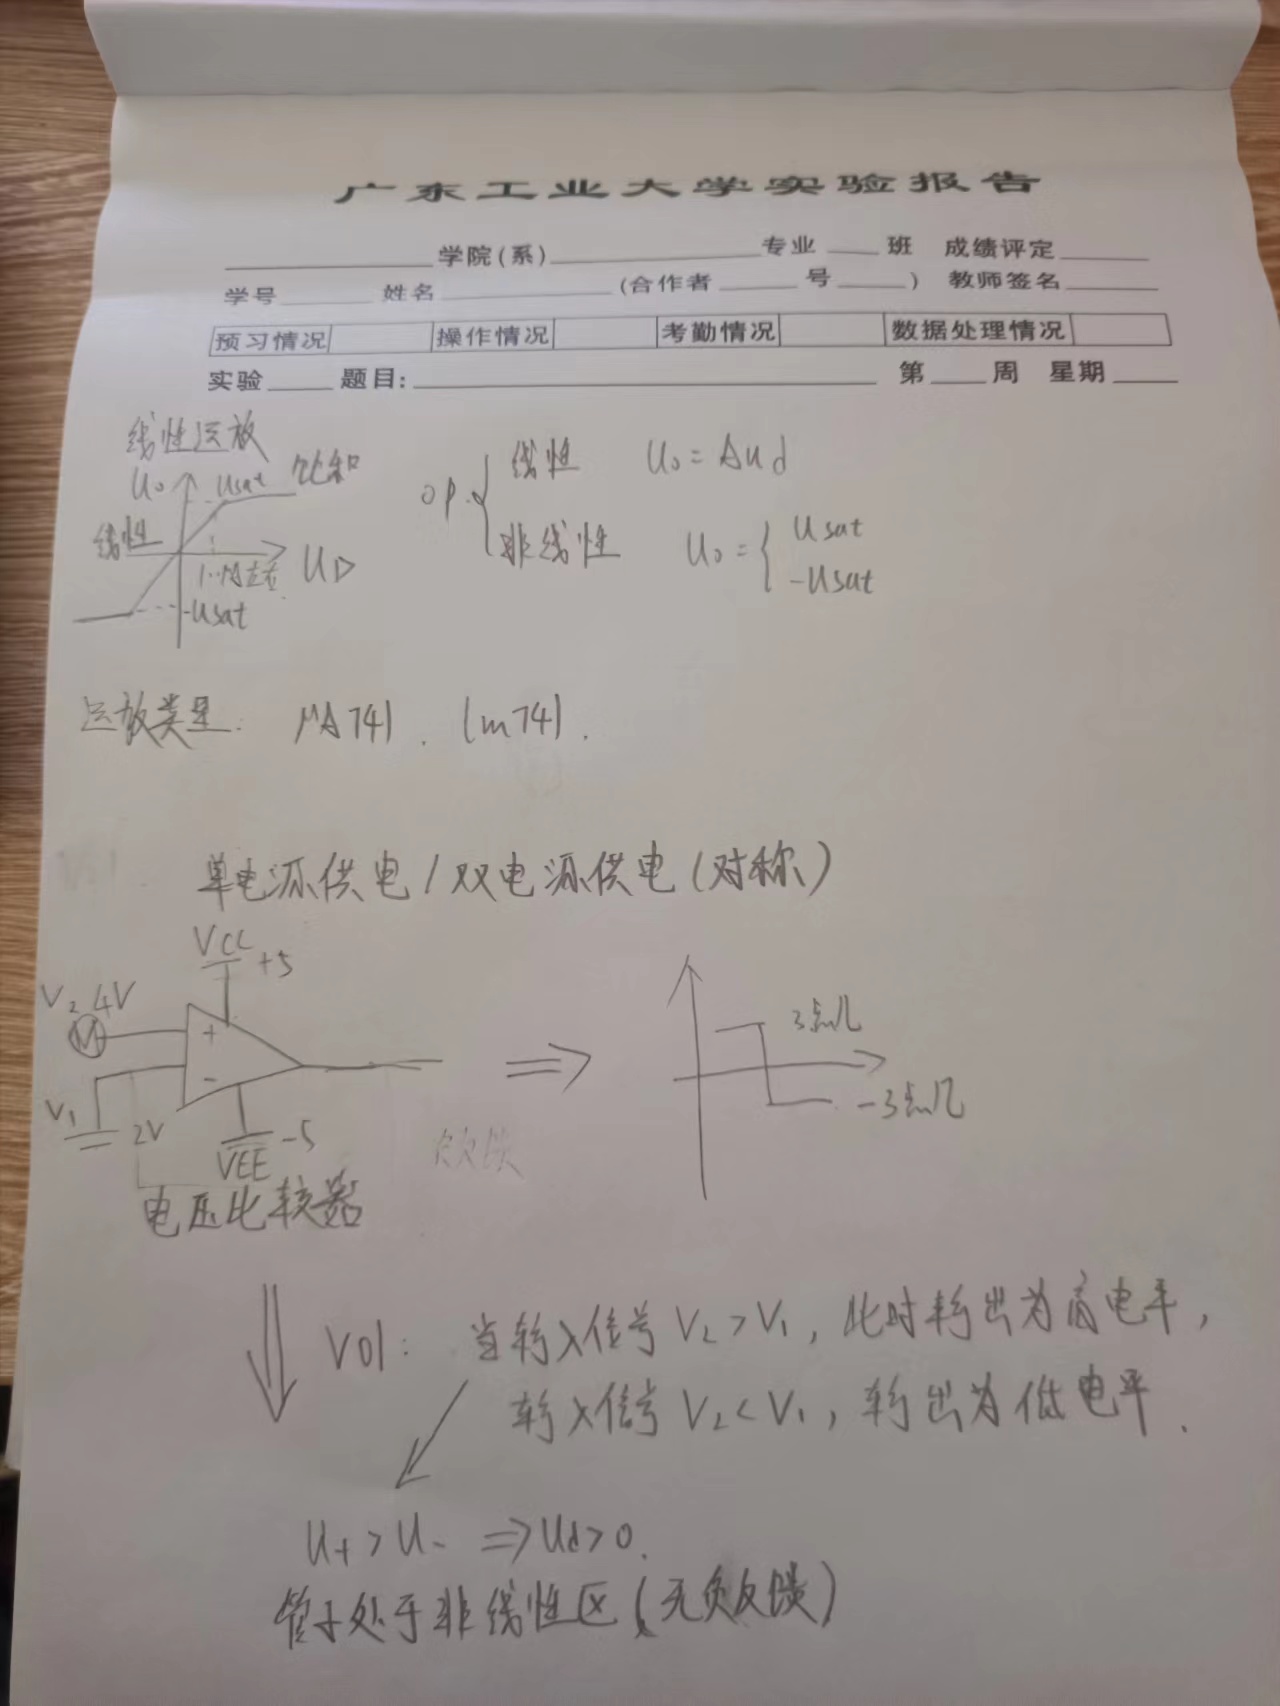 广东工业大学实验报告
学院(系) 专业 班 成绩评定
学号 姓名 (合作者 号 ) 教师签名
预习情况 操作情况 考勤情况 数据处理情况
实验 题目: 第 周 星期
线性运放
Uo Usat 饱和
线性
UD
-Usat
OP. 线性 Uo = Aud
非线性 Uo = { Usat
-Usat
运放类型: μA741 . lm741 .
单电源供电/双电源供电(对称)
VCC +5
V2 4V
+
-
V1 2V
VEE -5
3点几
-3点几
负反馈
电压比较器
V01: 当输入信号V2>V1, 此时输出为高电平,
输入信号V2<V1, 输出为低电平.
U+>U- ⇒Ud>0.
管子处于非线性区(无负反馈)